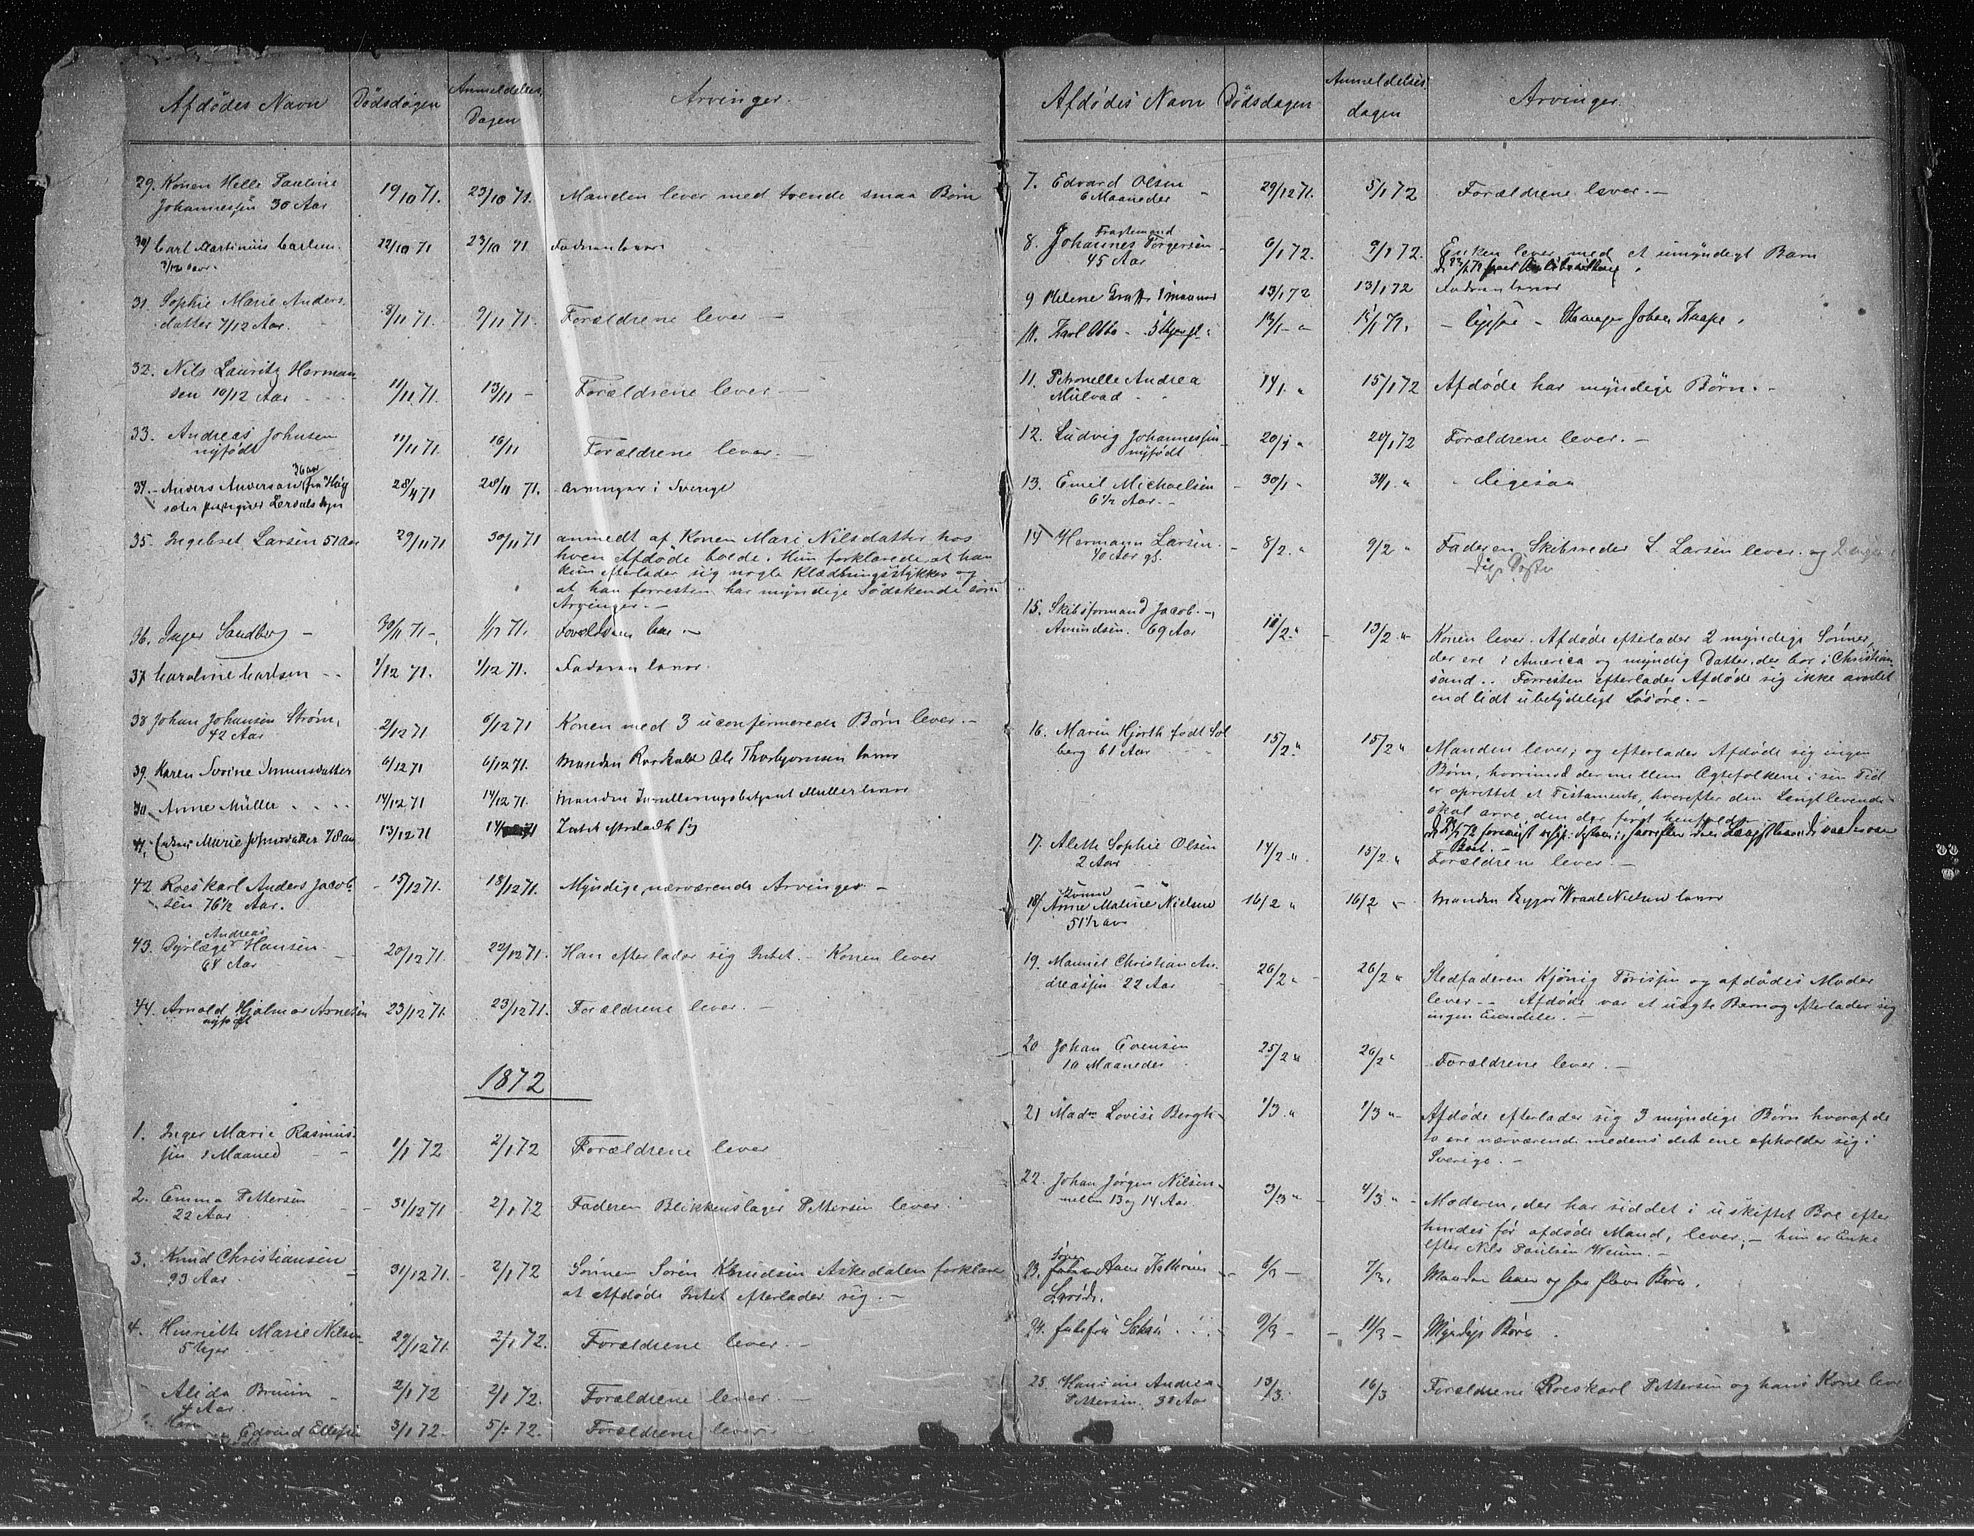 Afdødes Navn Dødsdagen Anmeldelses Dagen Arvinger.
29. Konen Helle Pauline 19/10 71. 23/10 71. Manden lever med tvende smaa Børn
Johannessen 30 Aar
30/ Carl Martinius Carlsen 22/10 71 23/10 71 Faderen lever
3/12 aar.
31. Sophie Marie Anders- 8/11 71. 9/11 71. Forældrene lever —
datter 7/12 Aar.
32. Nils Lauritz Herman-
sen 10/12 Aar 11/11 71. 13/11 – Forældrene lever —
33. Andreas Johnsen 11/11 71. 16/11 Forældrene lever. —
nyfødt
36 aar
34. Anders Anderson fra Høg 28/4 71 28/11 71. Arvinger i Sverige
35. Ingebret Larsen 51 Aar 29/11 71 30/11 71 anmedt af Konen Mari Nilsdatter hos
hven Afdøde boede. Hun forklarede at han
kun efterlader sig nogle Klædningsstykker og
at han forresten har myndige Sødskende som
Arvinger. —
36. Inger Sandberg — 30/11 71 – 1/12 71. Forældrene lever —
37 Karoline Karlsen – – 1/12 71. 1/12 71. Faderen lever.
38 Johan Johansen Strøm, 2/12 71 6/12 71 Konen med 3 uconfirmerede Børn lever. —
42 Aar
39. Karen Severine Amundsdatter 6/12 71 6/12 71. Manden Roeskarl Ole Thorbjørnsen lever
40. Anne Müller . . . . 14/12 71 14/12 71. Manden Müller lever
41. Marie Johnsdatter 78 aar 13/12 71 14/ 71 Intet efterladt sig
42 Roeskarl Anders Jacob- – 15/12 71. 18/12 71. Myndige, nærværende Arvinger —
sen 76½ Aar.
Andreas
43. Dyrlæge Hansen 20/12 71. 22/12 71. Han efterlader sig Intet. – Konen lever
64 Aar
44. Arnold Hjalmar Arnesen 23/12 71. 23/12 71. Forældrene lever. —
nyfødt
1872
1. Inger Marie Rasmus- 1/1 72 2/1 72 Forældrene lever
sen 1 Maaned
2. Emma Pettersen – 31/12 71 2/1 72 Faderen Blikkenslager Pettersen lever.
22 Aar
3. Knud Christiansen 31/12 71. – 2/1 72 Sønnen Søren Knudsen Askedalen forklare
93 Aar. at Afdøde Intet efterlader sig. —
4. Henriette Marie Nilsen 29/12 71. 2/1 72. Forældrene lever. —
5 Uger
Alida Bruun 2/1 72 2/1 72. Forældrene lever. —
4 Aar.
Edvind Ellefsen 3/1 72. 5/1 72. Forældrene lever. —
Afdødes Navn Dødsdagen Anmeldelses dagen Arvinger.
7. Edvard Olsen 29/12 71. 5/1 72 Forældrene lever. —
6 Maaneder
Fragtemand
8. Johannes Torgersen 6/1 72. 9/1 72. Enken lever med et umyndigt Barn
45 Aar
9 Helene 13/1 72 13/1 72 Faderen lever
10. Karl Otto – 13/1 – " 15/1 72. – ligesaa –
11. Petronelle Andrea 14/1 " 15/1 72 Afdøde har myndige Børn. –
Mulvad
12. Ludvig Johannessen 20/1 " 20/1 72 Forældrene lever. —
nyfødt
13. Emil Michaelsen 30/1 " 31/1 " " Ligesaa
6½ Aar. –
14 Hermann Larsen. – 8/2 " 9/2 " Faderen Skibsreder L. Larsen lever. og 2
40 Aar gl.
15. Skibsformand Jacob – 11/2 " – 13/2 " Konen lever. Afdøde efterlader 2 myndige Sønner,
Amundsen. 69 Aar
der ere i America og myndig Datter, der bor i Christian-
sand. . Forresten efterlader Afdøde sig ikke andet
end lidt ubetydeligt Løsøre. –
16. Maren Hjorth født Sol 15/2 " 15/2 " Manden lever; og efterlader Afdøde sig ingen
berg 61 Aar
Børn, hvorimod der mellem Ægtefolkene i sin Tid
er oprettet et Testamente, hvorefter den Længstlevende
skal arve den der først henfalder. —
17. Aleth Sophie Olsen 14/2 " 15/2 " Forældrene lever. —
2 Aar
Konen —
18/ Anne Matine Nielsen 16/2 " 16/2 – Manden Nielsen lever
51½ aar
19. Manuel Christian An- 26/2 " 26/2 " Stedfaderen Kjönig Törissen og afdødes Moder
dreassen 22 Aar
lever. – Afdøde var et uægte Barn og efterlader sig
ingen Eiendele. –
20 Johan Evensen 25/2 " 26/2 " Forældrene lever. —
10 Maaneder
21 Madm Lovise Bergh – 1/3 " 1/3 " – Afdøde efterlader sig 3 myndige Børn hvoraf de
to ere nærværende medens det ene opholder sig i
Sverige. –
22. Johan Jørgen Nilsen 3/3 " – 4/3 " Moderen, der har siddet i uskiftet Boe efter
mellem 13 og 14 Aar
hendes før afdøde Mand, lever; – hun er Enke
efter Nils Paulsen Weum. –
23. Anne Kathrine 6/3 – 7/3. Manden lever og har flere Børn.
24. 9/3 – – 11/3 – Myndige Børn.
25. Hansine Andrea 13/3. 16/3 Forældrene Roeskarl Pettersen og hans Kone leve
Pettersen. 38 Aar